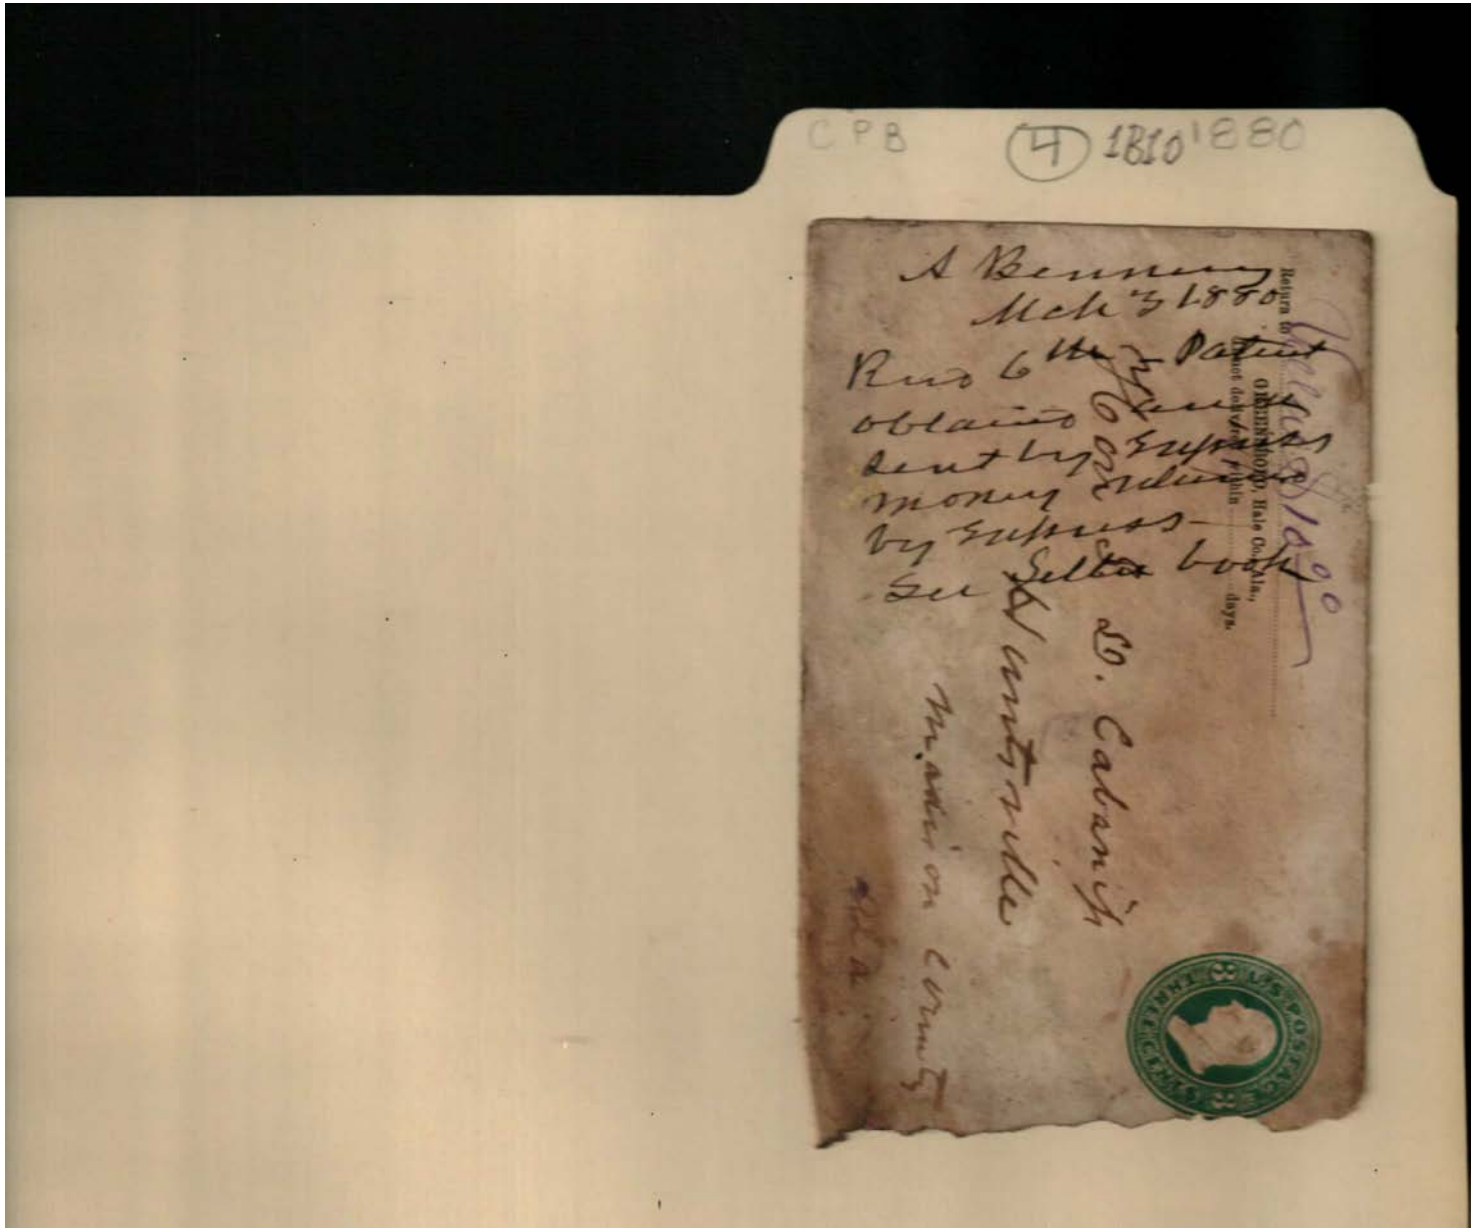 CPB 4 1B10 1880
A Benners
Mch 3 1880
Recd 6th Patent
obtained
sent by Express
money
by Express
See Letter book
Return to
GREENSBORO, Hale Co., Ala.,
If not delivered within days.
D. Cabaniss
Huntsville
Madison County
Ala
U.S. POSTAGE
THREE CENTS